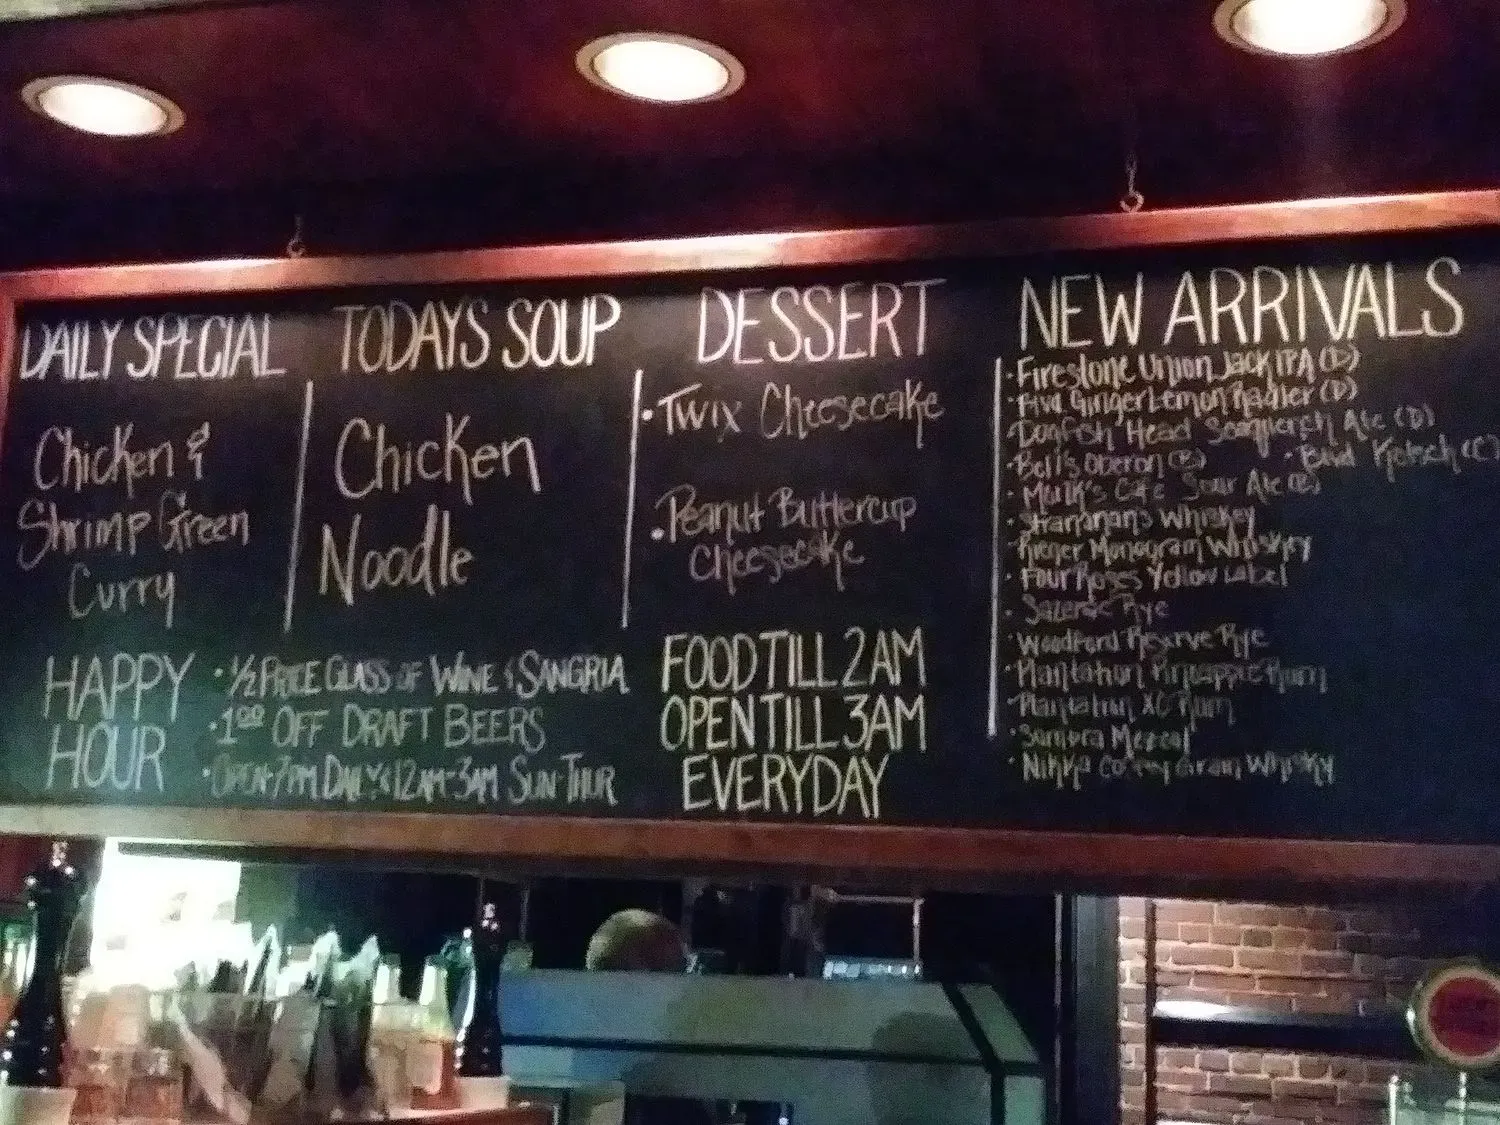 DAILY SPECIAL
Chicken &
Shrimp Green
Curry
TODAYS SOUP
Chicken
Noodle
DESSERT
• Twix Cheesecake
• Peanut Buttercup
Cheesecake
NEW ARRIVALS
• Firestone Union Jack IPA (D)
Ginger Lemon Radler (D)
Dogfish Head Ale (D)
• Bell's Oberon (B)
• Sour Ale (B)
• Stranahan's Whiskey
• Monogram Whiskey
• Four Roses Yellow Label
• Sazerac Rye
• Woodford Reserve Rye
• Plantation Pineapple Rum
• Plantation XO Rum
• Sombra Mezcal
• Nikka Coffey Grain Whisky
HAPPY
HOUR
• 1/2 PRICE GLASS OF WINE & SANGRIA
• 1.00 OFF DRAFT BEERS
• OPEN-7PM DAILY & 12AM-3AM SUN-THUR
FOOD TILL 2AM
OPEN TILL 3AM
EVERYDAY